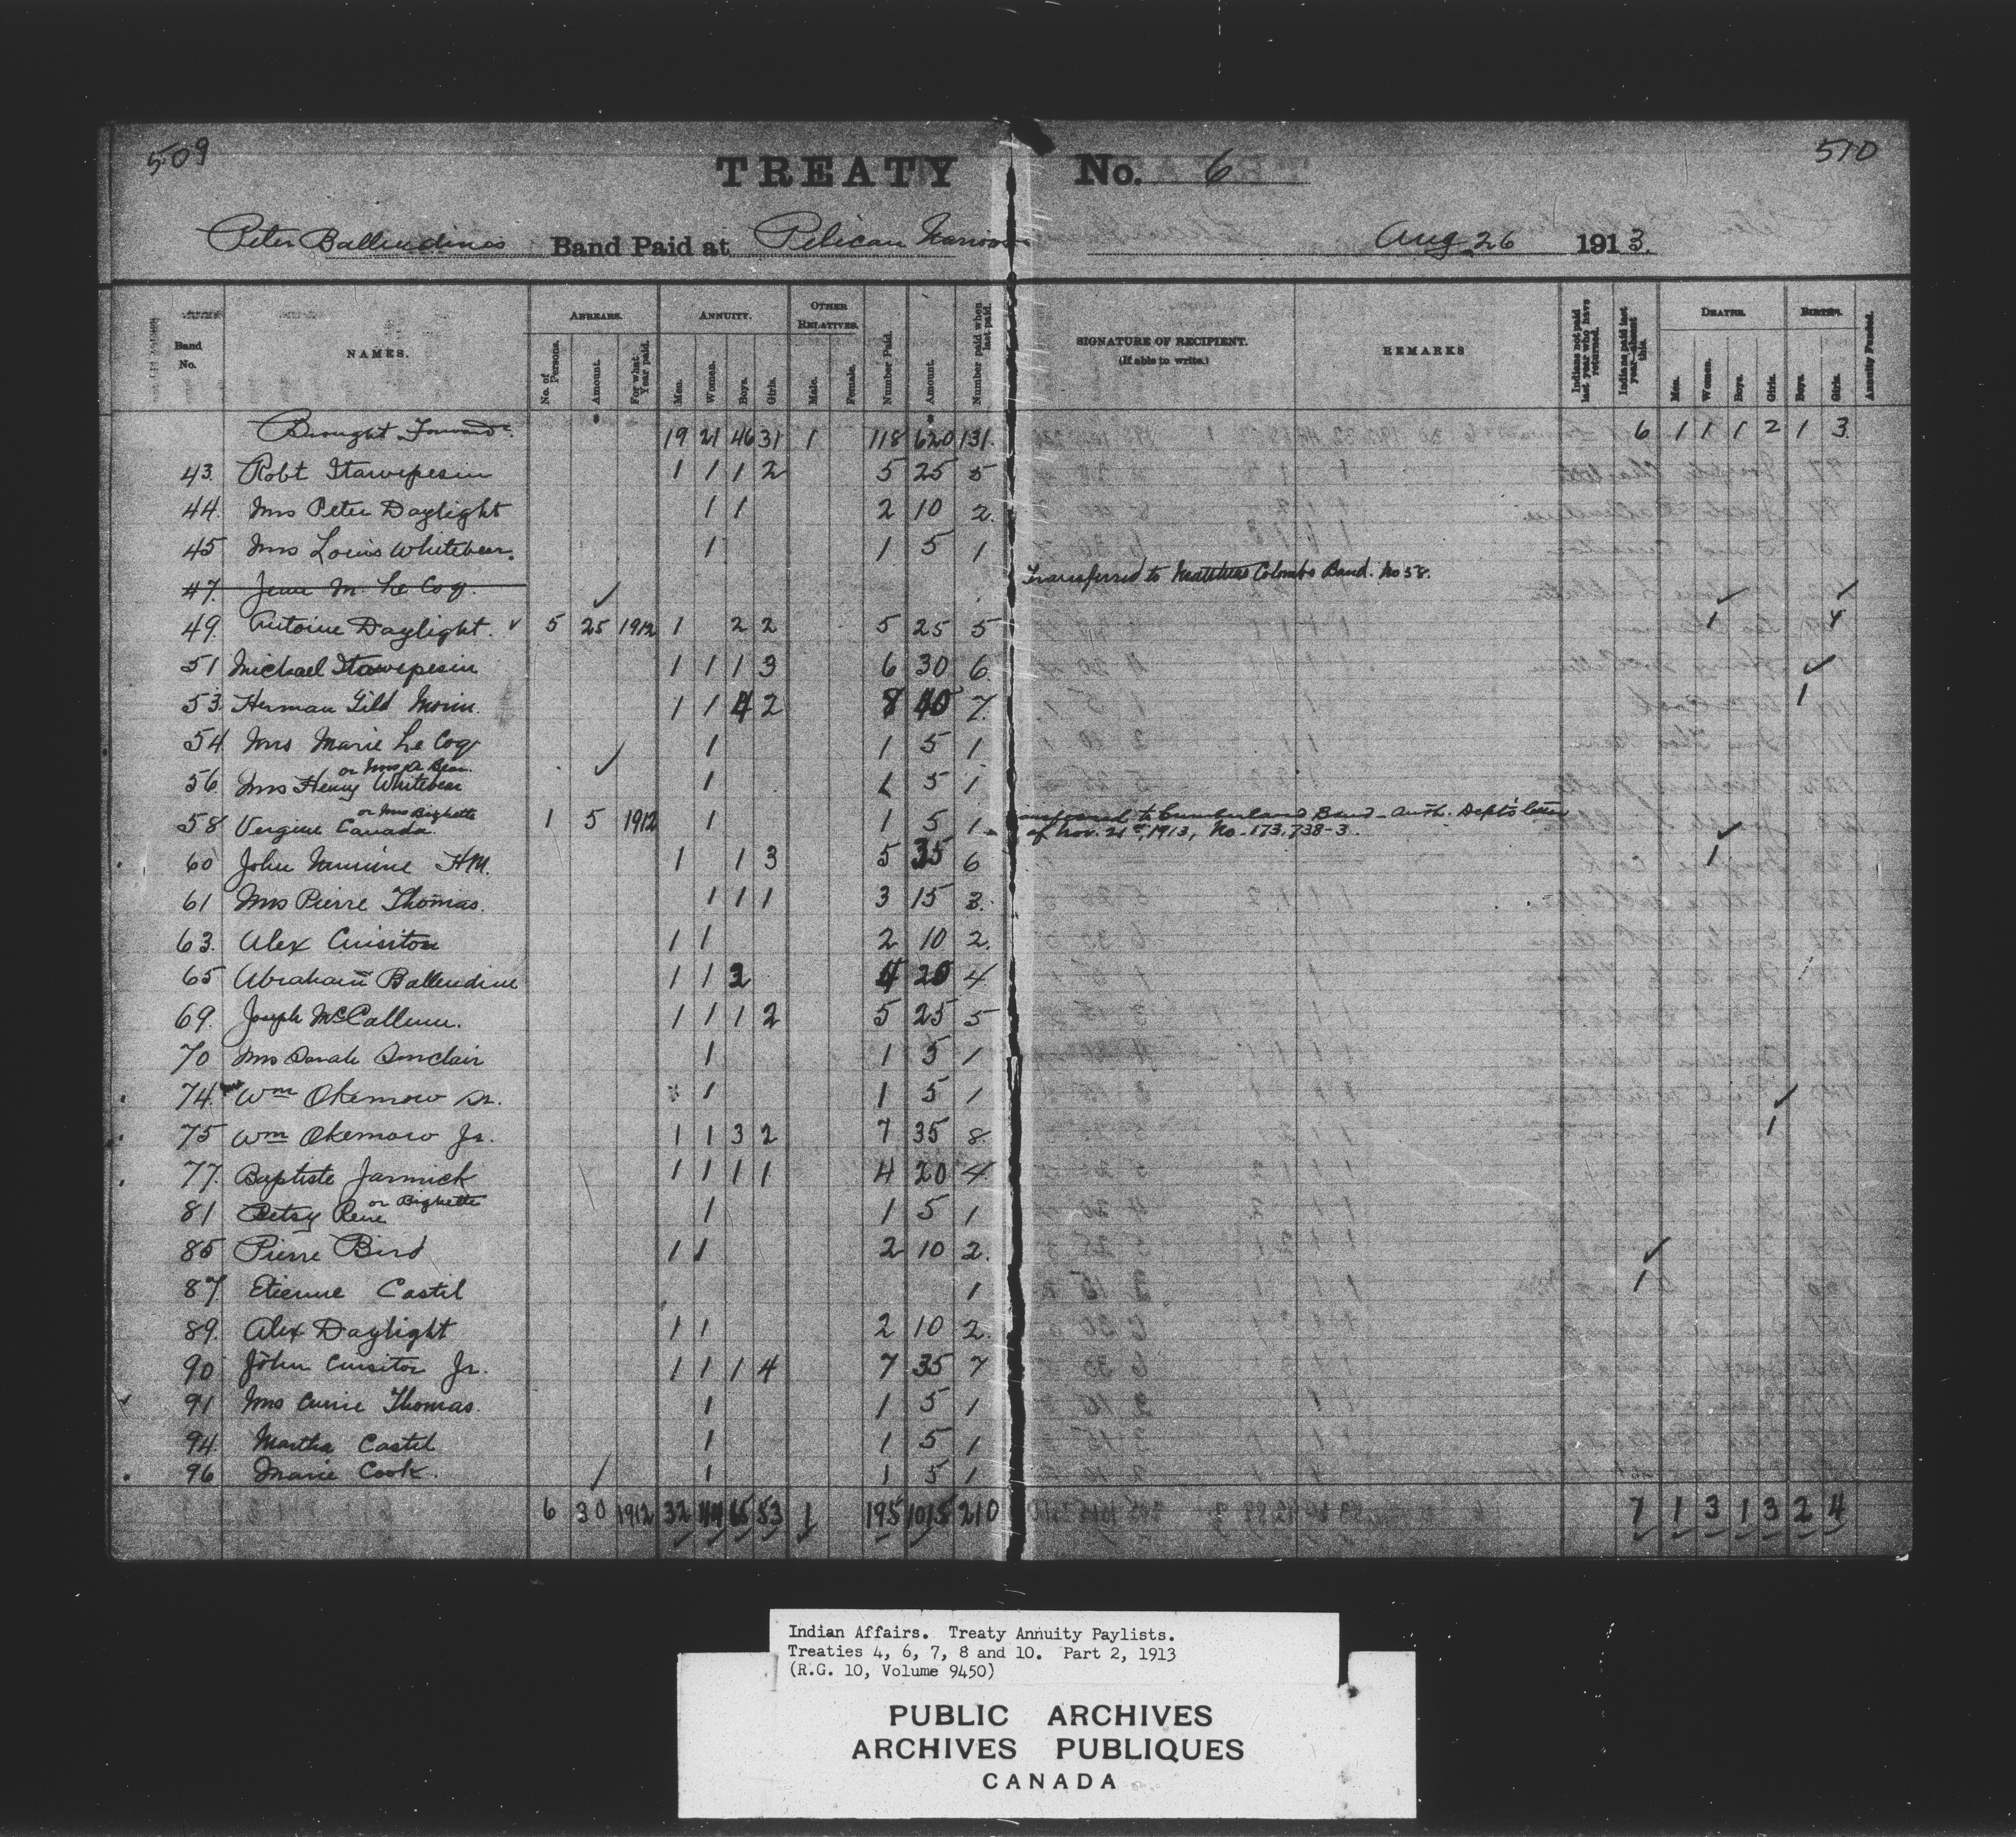 509
510
TREATY No. 6
Peter Ballendines Band Paid at Pelican Narrows Aug 26 1913.
Band No.
NAMES.
ARREARS.
No. of Persons.
Amount.
For what Year paid.
ANNUITY.
Men.
Women.
Boys.
Girls.
OTHER RELATIVES.
Male.
Female.
Number Paid.
Amount.
Number paid when last paid.
SIGNATURE OF RECIPIENT.
(If able to write.)
REMARKS
Indians not paid last year who have returned.
Indians paid last year—absent this.
DEATHS.
Men.
Women.
Boys.
Girls.
BIRTHS.
Boys.
Girls.
Annuity Funded.
Brought Forward 19 21 46 31 1 118 620 131 6 1 1 1 2 1 3
43 Robt Itawepesin 1 1 1 2 5 25 5
44 Mrs Peter Daylight 1 1 2 10 2
45 Mrs Louis Whitebear. 1 1 5 1
47. Jean M. Le Coq. Transferred to Mathias Colombs Band. No 58.
49 Antoine Daylight. 5 25 1912 1 2 2 5 25 5 1 4
51 Michael Itawepesin 1 1 1 3 6 30 6
53 Herman Gild Morin 1 1 4 2 8 40 7 1
54 Mrs Marie Le Coq 1 1 5 1
or Mrs A Bear
56 Mrs Henry Whitebear 1 1 5 1
or Mrs Bighette
58 Vergine Canada 1 5 1912 1 1 5 1 to Cumberland Band - Auth. Dept's letter
of Nov. 21st, 1913, No. 173,738-3.
60 John H.M. 1 1 3 5 35 6 1
61 Mrs Pierre Thomas. 1 1 1 3 15 3
63. Alex Cuisitor 1 1 2 10 2
65 Abraham Ballendine 1 1 2 4 20 4
69. Joseph McCallum. 1 1 1 2 5 25 5
70 Mrs Sarah Sinclair 1 1 5 1
74. Mrs Wm Okemow Sr. 1 1 5 1
75 Wm Okemow Jr. 1 1 3 2 7 35 8 1
77. Baptiste Jarmick 1 1 1 1 4 20 4
81 Betsy Rene or Bighette 1 1 5 1
85 Pierre Bird 1 1 2 10 2
87. Etienne Castil 1 1
89. Alex Daylight 1 1 2 10 2
90 John Cuisitor Jr. 1 1 1 4 7 35 7
91 Mrs Thomas. 1 1 5 1
94. Martha Castil 1 1 5 1
96 Marie Cook. 1 1 5 1
6 30 1912 32 44 65 53 1 195 1015 210 7 1 3 1 3 2 4
Indian Affairs. Treaty Annuity Paylists.
Treaties 4, 6, 7, 8 and 10. Part 2, 1913
(R.G. 10, Volume 9450)
PUBLIC ARCHIVES
ARCHIVES PUBLIQUES
CANADA